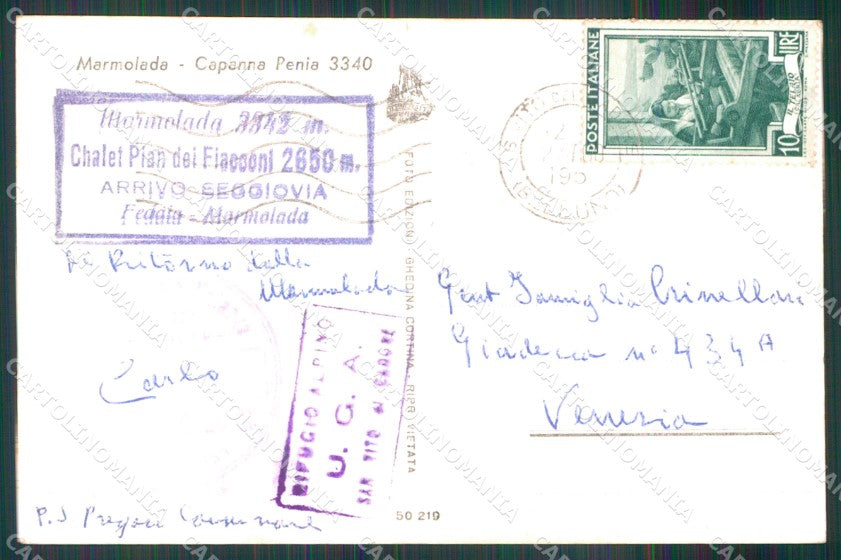 Marmolada - Capanna Penia 3340
Marmolada 3342 m.
Chalet Pian dei Fiacconi 2650 m.
ARRIVO SEGGIOVIA
Fedaia - Marmolada
Di Ritorno dalla
Marmolada
Carlo
RIFUGIO ALPINO
U. G. A.
SAN VITO DI CADORE
FOTO EDIZIONI GHEDINA CORTINA - RIPR. VIETATA
50 219
POSTE ITALIANE
10 LIRE
195
Gent Famiglia Crinellari
Giudecca n° 434 A
Venezia
CARTOLINOMANIA